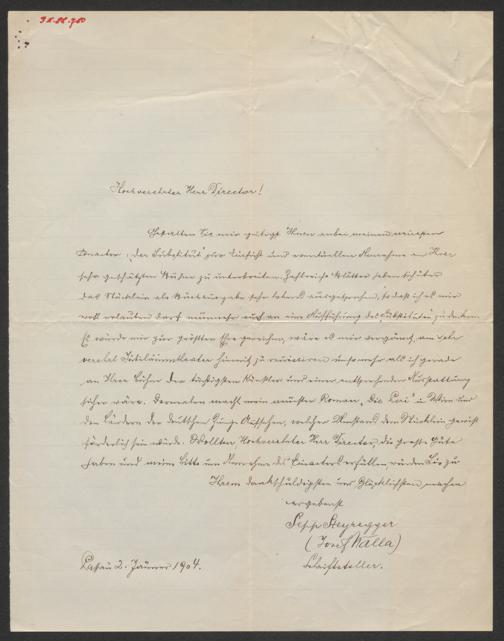 Hochverehrter Herr Director!
Gestatten Sie mir gütigst Ihnen anbei meinen neuesten
Einacter: „Der Substitut" zur Einsicht und eventuellen Annahme an Ihrer
sehr geschätzten Bühne zu unterbreiten. Zahlreiche Blätter haben
das Stücklein als sehr ausgesprochen, so daß ich es mir
wol erlauben darf nunmehr auch an eine Aufführung des Substituten zu denken.
Es würde mir zur größten Ehre gereichen, wäre es mir vergönnt, am sehr
Jubiläumstheater hiemit zu umsomehr als ich gerade
an Ihrer Bühne der tüchtigsten Künstler und einer entsprechenden Ausstattung
sicher wäre. Dermalen macht mein neuester Roman „Die in Wien und
den Ländern der deutschen Zunge Aufsehen, welcher Umstand dem Stücklein gewiß
förderlich sein würde. Wollten Hochverehrter Herr Director, die große Güte
haben und meine Bitte um Annahme des Einacters erfüllen, würden Sie zu
Ihrem dankschuldigsten und Glücklichsten machen
ergebenst
Sepp Steyregger
(Josef Walla)
2. Jänner 1904.
Schriftsteller.